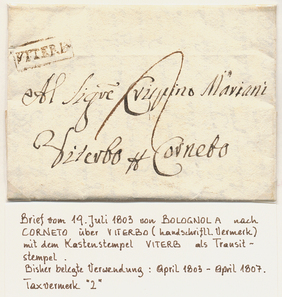 VITERB
Al Sigre Crispino Mariani
Viterbo p Corneto
Brief vom 19. Juli 1803 von BOLOGNOLA nach
CORNETO über VITERBO (handschriftl. Vermerk)
mit dem Kastenstempel VITERB als Transit-
stempel.
Bisher belegte Verwendung: April 1803 - April 1807.
Taxvermerk "2"